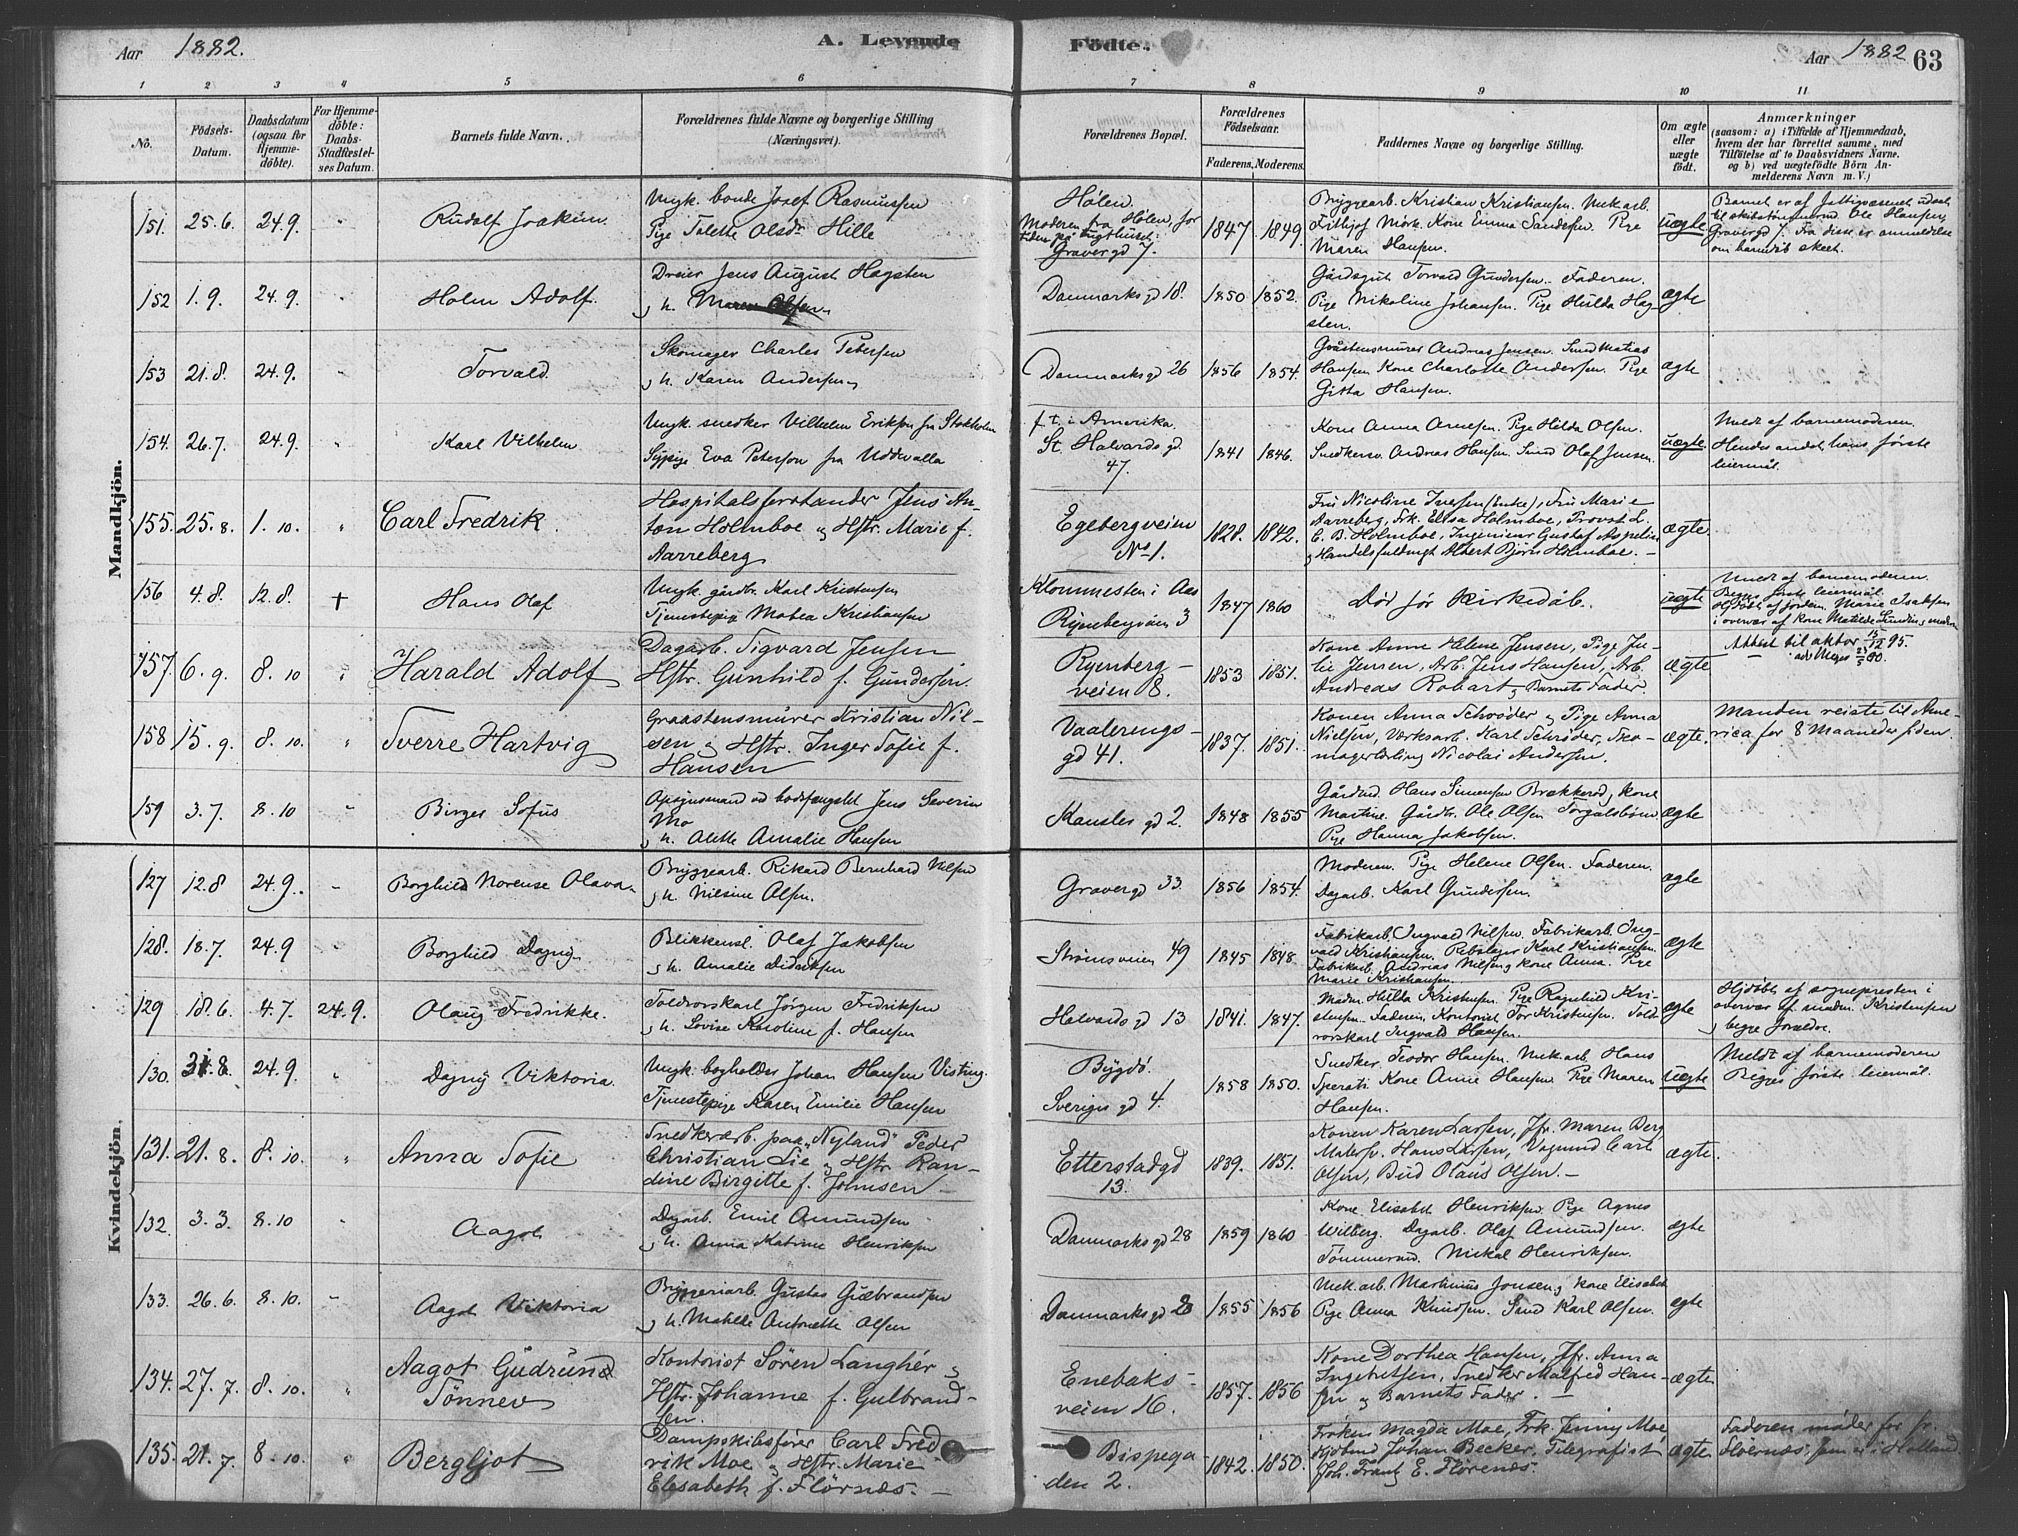 Aar 1882. A. Levende Födte. Aar 1882 63
1 2 3 4 5 6 7 8 9 10 11
No.
Födsels-Datum.
Daabsdatum (ogsaa för Hjemme-döbte).
For Hjemme-döbte: Daabs-Stadfæstel-ses Datum.
Barnets fulde Navn.
Forældrenes fulde Navne og borgerlige Stilling (Næringsvei).
Forældrenes Bopæl.
Forældrenes Födselsaar.
Faderens. Moderens.
Faddernes Navne og borgerlige Stilling.
Om ægte eller uægte födt.
Anmærkninger
(saasom: a) i Tilfælde af Hjemmedaab, hvem der har forrettet samme, med Tilföielse af to Daabsvidners Navne, og b) ved uægtefödte Börn An-melderens Navn m. V.)
Mandkjön.
151. 25.6. 24.9. Rudolf Joakim.
Ungk. bonde Josef Rasmussen
Pige Talette Olsdr Hille
Hølen.
Moderen fra Hølen, for tiden på
Gravergd 7.
1847. 1849.
Bryggearb. Kristian Kristiansen. Mek. arb.
Fithjof Mørk. Kone Emma Sandersen. Pige
Maren Hansen.
uægte
Barnet er af fattigvæsenet udsat
Ole Hansen,
Gravergd 7. Fra disse er anmeldelse
om barnedåb skeet.
152 1.9. 24.9. Holm Adolf.
Dreier Jens August Hagsten
og h. Maren Olsen
Danmarks gd 18. 1850 1852.
Gårdsgut Torvald Gundersen. Faderen.
Pige Nikoline Johansen. Pige Hulda Hag-
sten.
ægte
153 21.8. 24.9. Torvald
Skomager Charles Petersen
og h. Karen Andersen
Danmarks gd 26 1856 1854.
Gråstensmurer Andreas Jensen. Smed Matias
Hansen Kone Charlotte Andersen. Pige
Gitta Hansen.
ægte
154. 26.7. 24.9. Karl Vilhelm
Ungk. snedker Vilhelm Erikson fra Stokholm
Sypige Eva Peterson fra Uddevalla
f. t. i Amerika.
St. Halvards gd.
47.
1841 1846.
Kone Anna Arnesen. Pige Hilda Olsen.
Snedkersv. Andreas Hansen. Smed Olaf Jensen.
uægte
Meldt af barnemoderen.
Hendes andet, hans første
leiermål.
155. 25.8. 1.10. Carl Fredrik.
Hospitalsforstander Jens An-
ton Holmboe og Hstr. Marie f.
Aarreberg
Egebergveien
No 1.
1828. 1842.
Fru Nicoline Ivessen (Enke), Fru Marie
Aarreberg, Frk. Elisa Holmboe, Provst L.
C. B. Holmboe, Ingenieur Gustaf Aspelin
og Handelsfuldmægt Albert Bjørn Holmboe. —
ægte
156 4.8. 12.8. † Hans Olaf
Ungk. gårdbr. Karl Kristensen
Tjenestepige Matea Kristiansen
Klommesten i Aas
Ryenbergveien 3
1847 1860
Død før Kirkedåb.
uægte
Meldt af barnemoderen.
Begges første leiermål.
Hjdøbt af jordem. Marie Isaksen
i overvær af kone Matilde
157. 6.9. 8.10 Harald Adolf
Dagarb. Sigvard Jensen
Hstr. Gunhild f. Gundersen.
Ryenberg-
veien 8.
1853 1851.
Kone Anne Helene Jensen, Pige Ju-
lie Jensen, Arb. Jens Hansen, Arb.
Andreas Robart og Barnets Fader.
ægte
Attest til aktor 15/12 95.
158 15.9. 8.10. Sverre Hartvig
Graastensmurer Kristian Nil-
sen og Hstr. Inger Sofie f.
Hansen
Vaalerengs-
gd 41.
1837. 1851.
Konen Anna Schrøder og Pige Anna
Nielsen, Værksarb. Karl Schrøder, Sko-
magerlærling Nicolai Andersen.
ægte.
Manden reiste til Ame-
rica for 8 Maaneder siden
159 3.7. 8.10 Birger Sofus
Opsynsmand ved bodsfængslet Jens Severin
Mo
og h. Alette Amalie Hansen
Kanslergd 2. 1848 1855
Gårdmd. Hans Simensen Brækkerød og kone
Martine. Gårdbr. Ole Olsen
Pige Hanna Jakobsen.
ægte
Kvindekjön.
127 12.8 24.9. Borghild Norense Olava
Bryggearb. Rikard Bernhard Nilsen
og h. Nilsine Olsen.
Gravergd 33. 1856 1854.
Moderen. Pige Helene Olsen. Faderen.
Dagarb. Karl Gundersen.
ægte
128. 18.7. 24.9 Borghild Dagny
Blikkensl. Olaf Jakobsen
og h. Amalie Didriksen
Strømsveien 49 1845 1848
Fabrikarb. Ingvald Nilsen. Fabrikarb. Ing-
vald Kristiansen. Rebslager Karl Kristiansen.
Fabrikarb. Andreas Nilsen og kone Anna. Pige
Marie Kristiansen.
ægte
129 18.6. 4.7. 24.9. Olaug Fredrikke.
Toldrorskarl Jørgen Fredriksen
og h. Lovise Karoline f. Hansen
Halvards gd 13 1841. 1847.
Madm. Hulda Kristensen. Pige Ragnhild Kri-
stensen. Faderen, Kontorist Tor Kristensen. Told-
rorskarl Ingvald Hansen.
ægte
Hjdøbt af sognepresten i
overvær af madm. Kristensen
og begge forældre.
130. 31.8. 24.9. Dagny Viktoria.
Ungk. bogholder Johan Hansen Visting.
Tjenestepige Karen Emilie Hansen
Bygdø.
Sveriges gd 4.
1858 1850.
Snedker Teodor Hansen. Mek. arb. Hans
Sperati Kone Anne Hansen. Pige Maren
Hansen.
uægte
Meldt af barnemoderen
Begges første leiermål.
131. 21.8. 8.10. Anna Sofie
Snedkerarb. paa "Nyland" Peder
Christian Lie og Hstr. Ran-
dine Birgitte f. Johnsen —
Etterstadgd
13.
1839. 1851.
Konen Karen Larsen, Jfr. Maren Berg
Malersv. Hans Larsen, Vognmd Carl
Olsen, Bud Olaus Olsen. —
ægte.
132. 3.3. 8.10 Aagot
Dagarb. Emil Amundsen
og h. Anna Katrine Henriksen
Danmarks gd 28 1859 1860
Kone Elisabet Henriksen. Pige Agnes
Wilberg. Dagarb. Olaf Amundsen.
Tømmermd. Mickal Henriksen.
ægte
133. 26.6. 8.10. Aagot Viktoria
Bryggeriarb. Gustav Gulbrandsen
og h. Matilde Antonette Olsen
Danmarks gd 28 1855 1856
Mek. arb. Martinius Jonsen og kone Elisabet
Pige Anna Knudsen. Smed Karl Olsen.
ægte
134. 27.7. 8.10. Aagot Gudrund
Tönnev
Kontorist Sören Langhér og
Hstr. Johanne f. Gulbrand-
sen.
Enebaks-
veien 16.
1857. 1856
Kone Dorthea Hansen, Jfr. Anna
Ingebretsen, Snedker Malfred Han-
sen og Barnets Fader. —
ægte
135. 21.7. 8.10 Bergljot
Dampskibsfører Carl Fred-
rik Moe og Hstr. Marie
Elesabeth f. Flörnæs. —
Bispega
den 2.
1842. 1850.
Frøken Magda Moe, Frk. Jenny Moe
Johan Becker, Telegrafist
Joh. Frantz E. Flörenæs.
ægte
Faderen møder for Hr.
Floernæs, som er i Holland